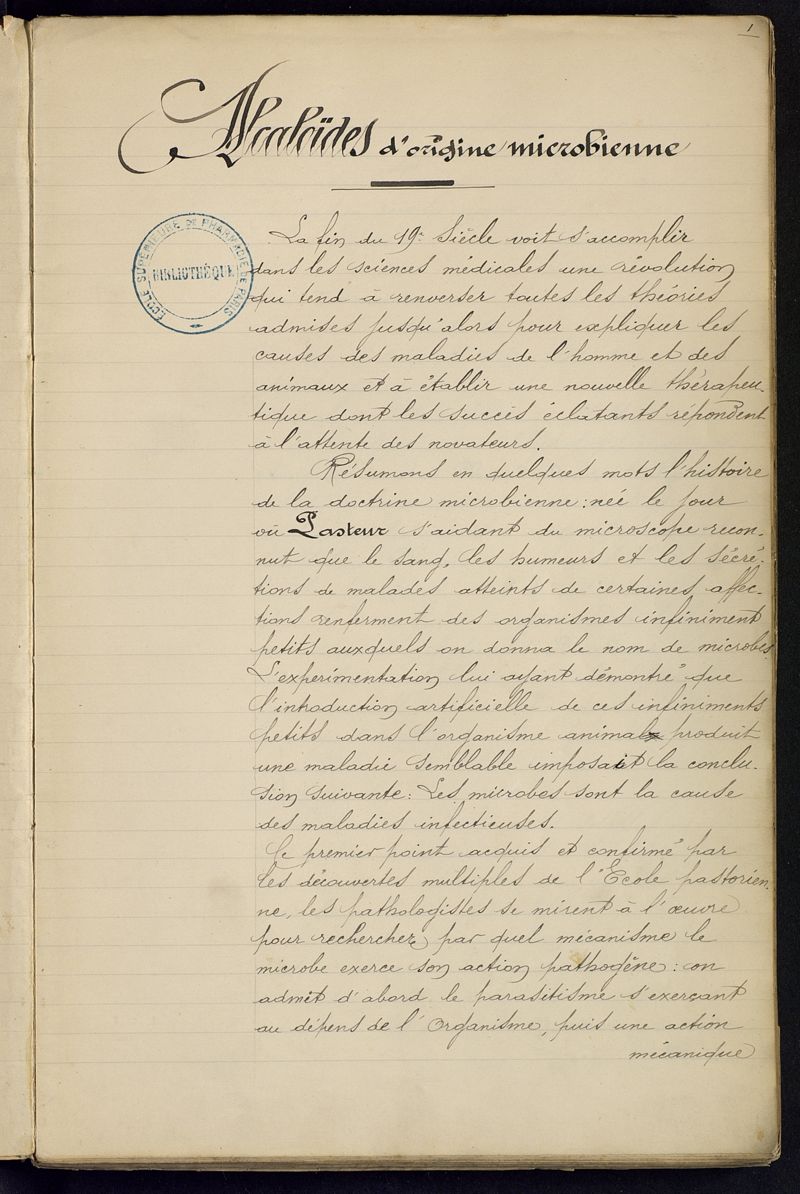 1
Alcaloïdes d'origine microbienne
ÉCOLE SUPÉRIEURE DE PHARMACIE DE PARIS
BIBLIOTHÈQUE
La fin du 19e Siècle voit s'accomplir
dans les sciences médicales une révolution
qui tend à renverser toutes les théories
admises jusqu'alors pour expliquer les
causes des maladies de l'homme et des
animaux et à établir une nouvelle thérapeu-
tique dont les succès éclatants répondent
à l'attente des novateurs.
Résumons en quelques mots l'histoire
de la doctrine microbienne: née le jour
où Pasteur s'aidant du microscope recon-
nut que le sang, les humeurs et les sécré-
tions de malades atteints de certaines affec-
tions renferment des organismes infiniment
petits auxquels on donna le nom de microbes.
L'experimentation lui ayant démontré que
l'introduction artificielle de ces infiniments
petits dans l'organisme animal produit
une maladie semblable imposait la conclu-
sion suivante: Les microbes sont la cause
des maladies infectieuses.
Ce premier point acquis et confirmé par
les découvertes multiples de l'Ecole pastorien-
ne, les pathologistes se mirent à l'œuvre
pour rechercher par quel mécanisme le
microbe exerce son action pathogène: on
admit d'abord le parasitisme s'exerçant
au dépens de l'Organisme, puis une action
mécanique